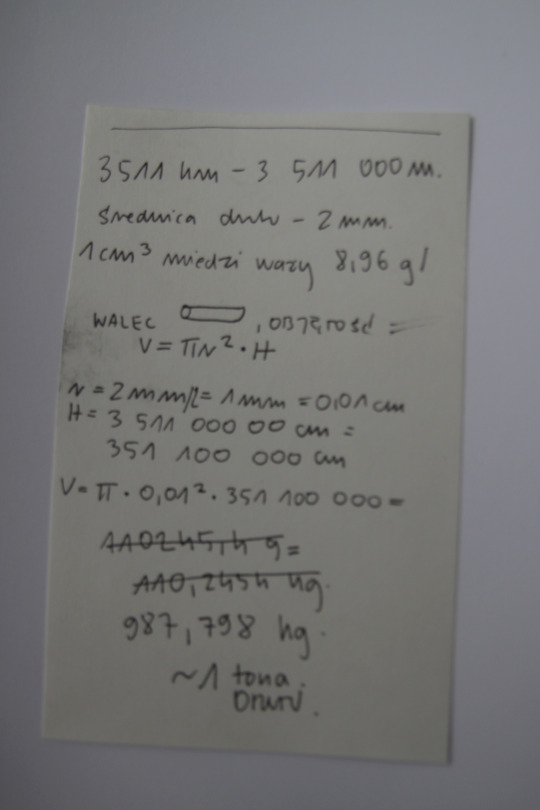 3511 km - 3 511 000 m.
średnica drutu - 2 mm.
1 cm³ miedzi waży 8,96 g/
WALEC , OBJĘTOŚĆ =
V = πr² · H
r = 2mm/2 = 1mm = 0,01 cm
H = 3 511 000 00 cm =
351 100 000 cm
V = π · 0,01² · 351 100 000 =
110245,4 g =
110,2454 kg.
987,798 kg.
~1 tona.
DRUTU.